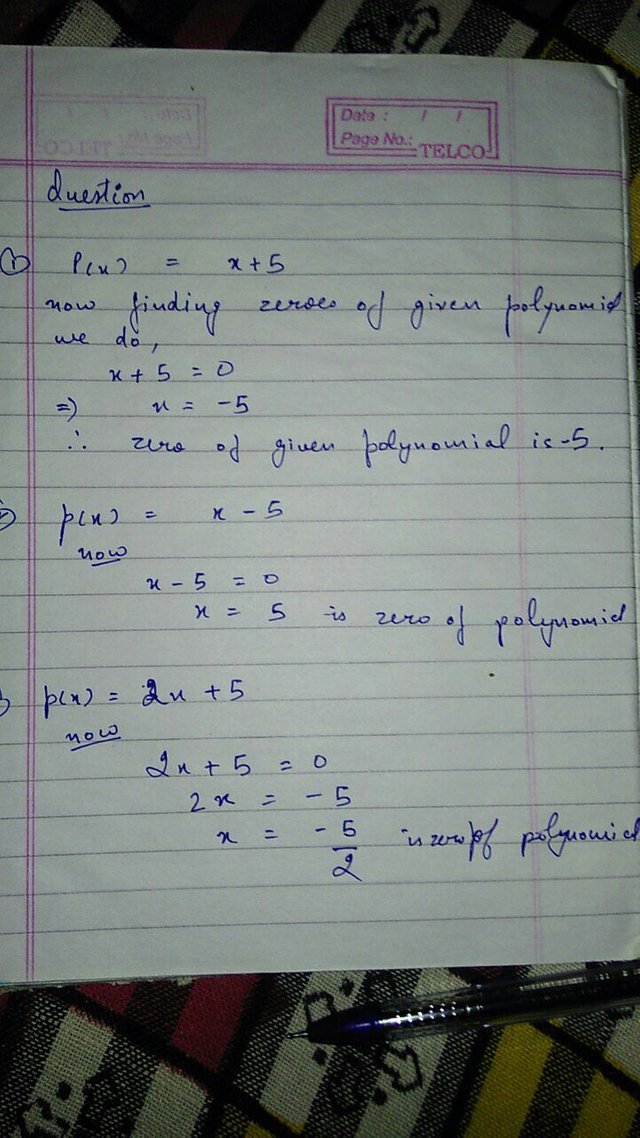 Date : / /
Page No.:
TELCO
Question
① P(x) = x+5
now finding zeroes of given polynomial
we do,
x + 5 = 0
=) x = -5
∴ zero of given polynomial is -5.
p(x) = x - 5
now
x - 5 = 0
x = 5 is zero of polynomial
p(x) = 2x + 5
now
2x + 5 = 0
2x = -5
x = -5/2 is zero of polynomial